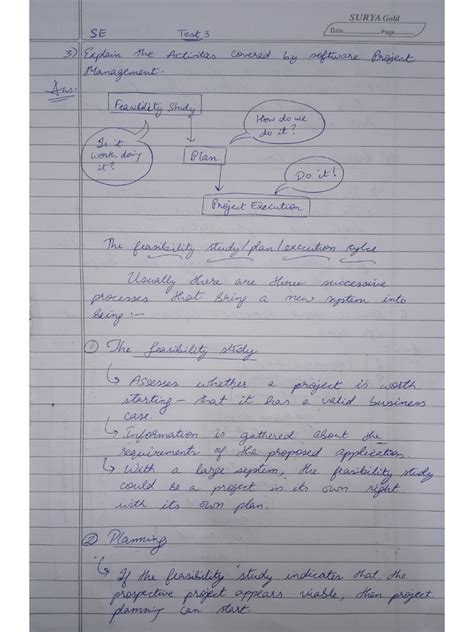 SURYA Gold
Date Page
SE Test 3
3) Explain the Activities covered by software Project
Management.
Ans:
Feasibility Study
How do we
do it?
Is it
worth doing
it?
Plan
Do it!
Project Execution
The feasibility study/plan/execution
Usually there are three successive
processes that bring a new system into
being :-
① The feasibility study
↳ Assesses whether a project is worth
starting - that it has a valid business
case.
↳ Information is gathered about the
requirements of the proposed application.
↳ With a large system, the feasibility study
could be a project in its own right
with its own plan.
② Planning
↳ If the feasibility study indicates that the
prospective project appears viable, then project
planning can start.